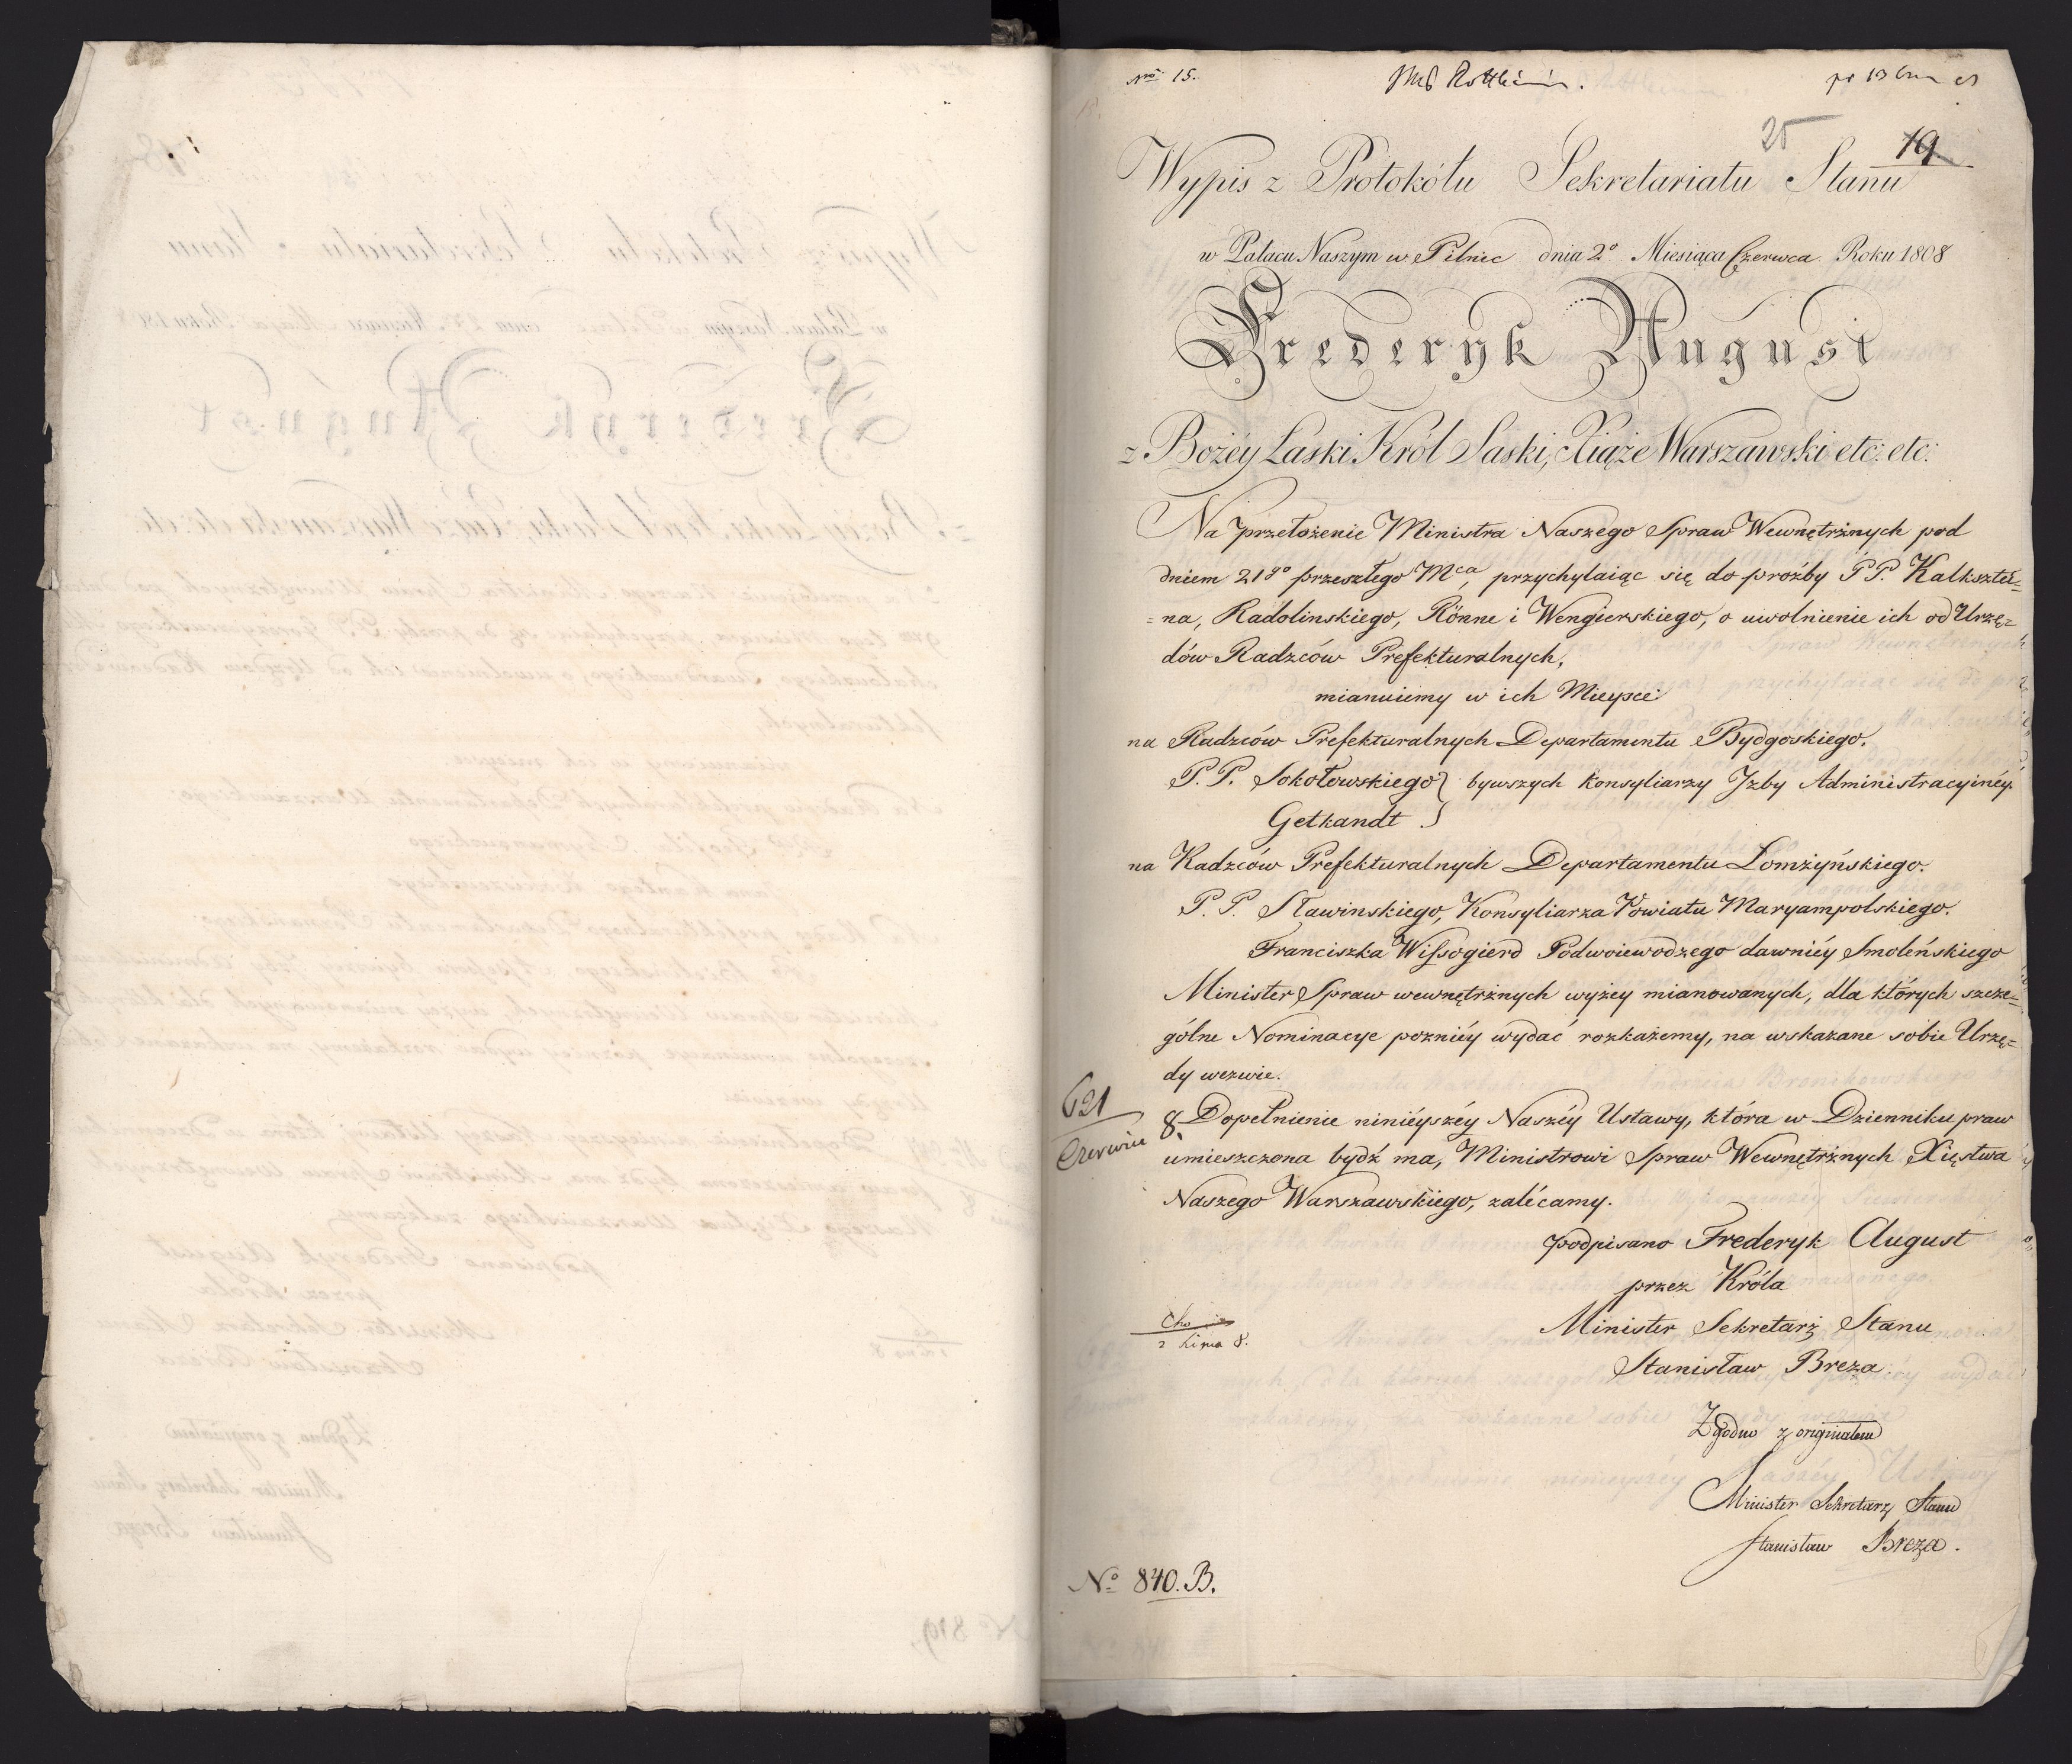 Nro 15.
25
19.
Wypis z Protokółu Sekretariatu Stanu
w Pałacu Naszym w Pilnic dnia 2o Miesiąca Czerwca Roku 1808
Frederyk August
z Bożéy Łaski Król Saski, Xiąże Warszawski etc: etc:
Na przełożenie Ministra Naszego Spraw Wewnętrżnych pod
dniem 21go przeszłego Mca, przychylaiąc się do proźby P.P. Kalkszter=
=na, Radolinskiego, Rönne i Wengierskiego, o uwolnienie ich od Urzę=
dów Radzców Prefekturalnych,
mianuiemy w ich Mieysce:
na Radzców Prefekturalnych Departamentu Bydgoskiego.
P.P. Sokołowskiego } bywszych Konsyliarzy Jzby Administracyinéy.
Getkandt }
na Radzców Prefekturalnych Departamentu Łomżyńskiego.
P.P. Sławinskiego, Konsyliarza Powiatu Maryampolskiego.
Franciszka Wissogierd Podwoiewodzego dawniéy Smoleńskiego
Minister Spraw wewnętrżnych wyżey mianowanych, dla których szcze=
gólne Nominacye pozniéy wydać rozkażemy, na wskazane sobie Urzę=
dy wezwie.
621
Czerwiec 8.
Dopełnienie ninieyszéy Naszéy Ustawy, która w Dzienniku praw
umieszczona bydź ma, Ministrowi Spraw Wewnętrżnych Xięstwa
Naszego Warszawskiego, zalécamy.
podpisano Frederyk August
przez Króla
Minister Sekretarz Stanu
Stanisław Breza.
Zgodno z originałem
Minister Sekretarz Stanu
Stanisław Breza.
No 840. B.